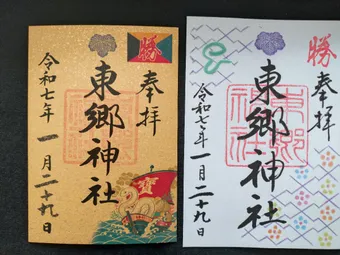 勝
奉拝
東郷神社
令和七年 一月二十九日
勝
奉拝
東郷神社
令和七年 一月二十九日